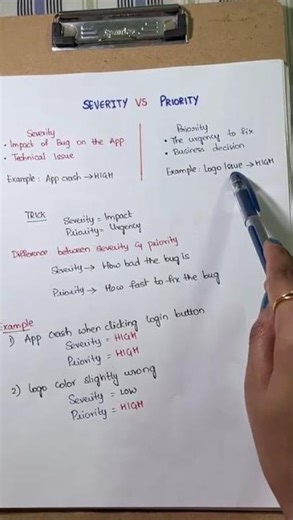 SEVERITY VS PRIORITY
Severity
• Impact of Bug on the App
• Technical Issue
Example: App crash → HIGH
Priority
• The urgency to fix
• Business decision
Example: Logo Issue → HIGH
TRICK
Severity = Impact
Priority = Urgency
Difference between severity & priority
Severity → How bad the bug is
Priority → How fast to fix the bug
Example
1) App crash when clicking login button
Severity = HIGH
Priority = HIGH
2) Logo color slightly wrong
Severity = LOW
Priority = HIGH